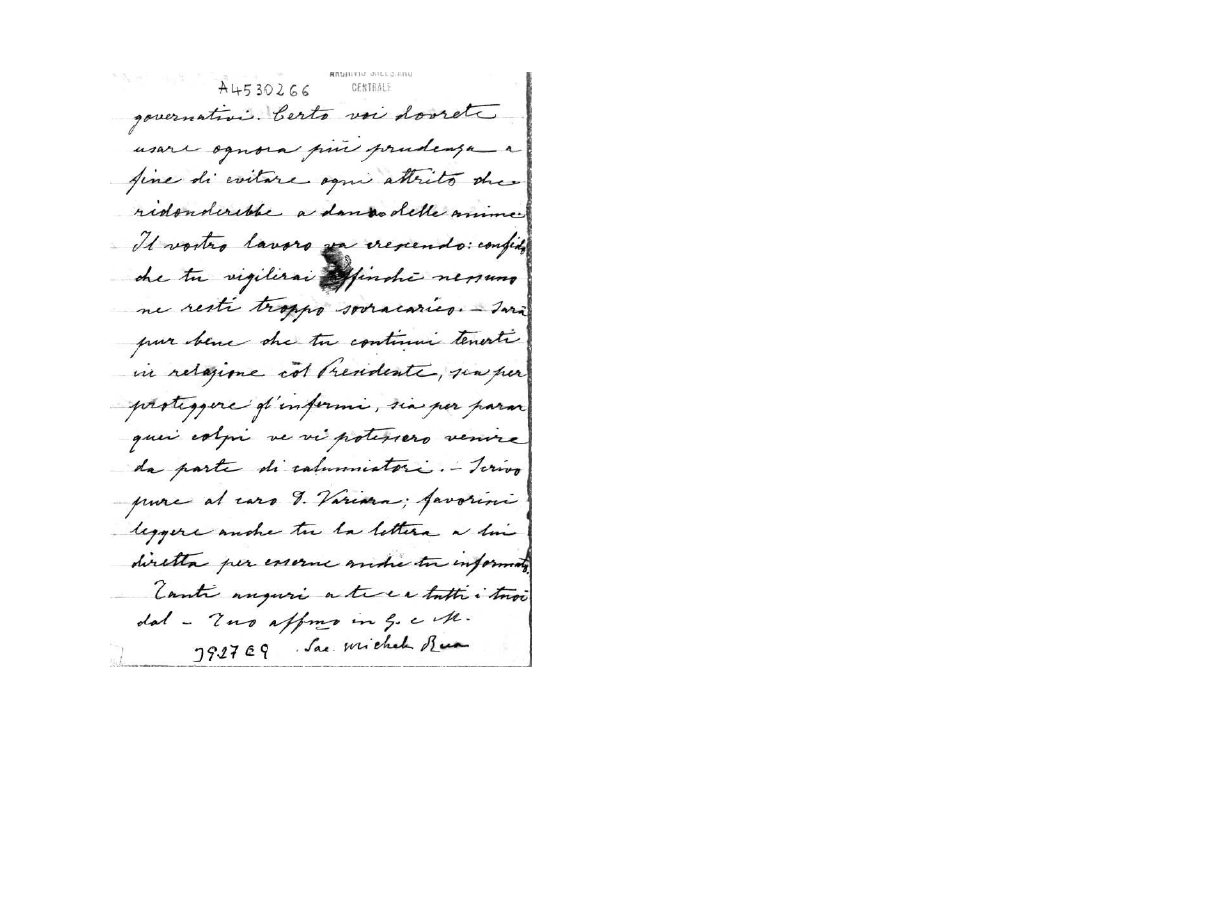 ARCHIVIO SALESIANO
A4530266 CENTRALE
governativi. Certo voi dovrete
usare ognora più prudenza a
fine di evitare ogni attrito che
ridonderebbe a danno delle anime
Il vostro lavoro va crescendo: confido
che tu vigilirai affinchè nessuno
ne resti troppo sovracarico. – Sarà
pur bene che tu continui tenerti
in relazione col Presidente, sia per
proteggere gl'infermi, sia per parar
quei colpi ve vi potessero venire
da parte di calunniatori. – Scrivo
pure al caro D. Variara; favorirai
leggere anche tu la lettera a lui
diretta per esserne anche tu informato.
Tanti auguri a te e a tutti i tuoi
dal – Tuo affmo in G. e M.
3927 E9 Sac. Michele Rua